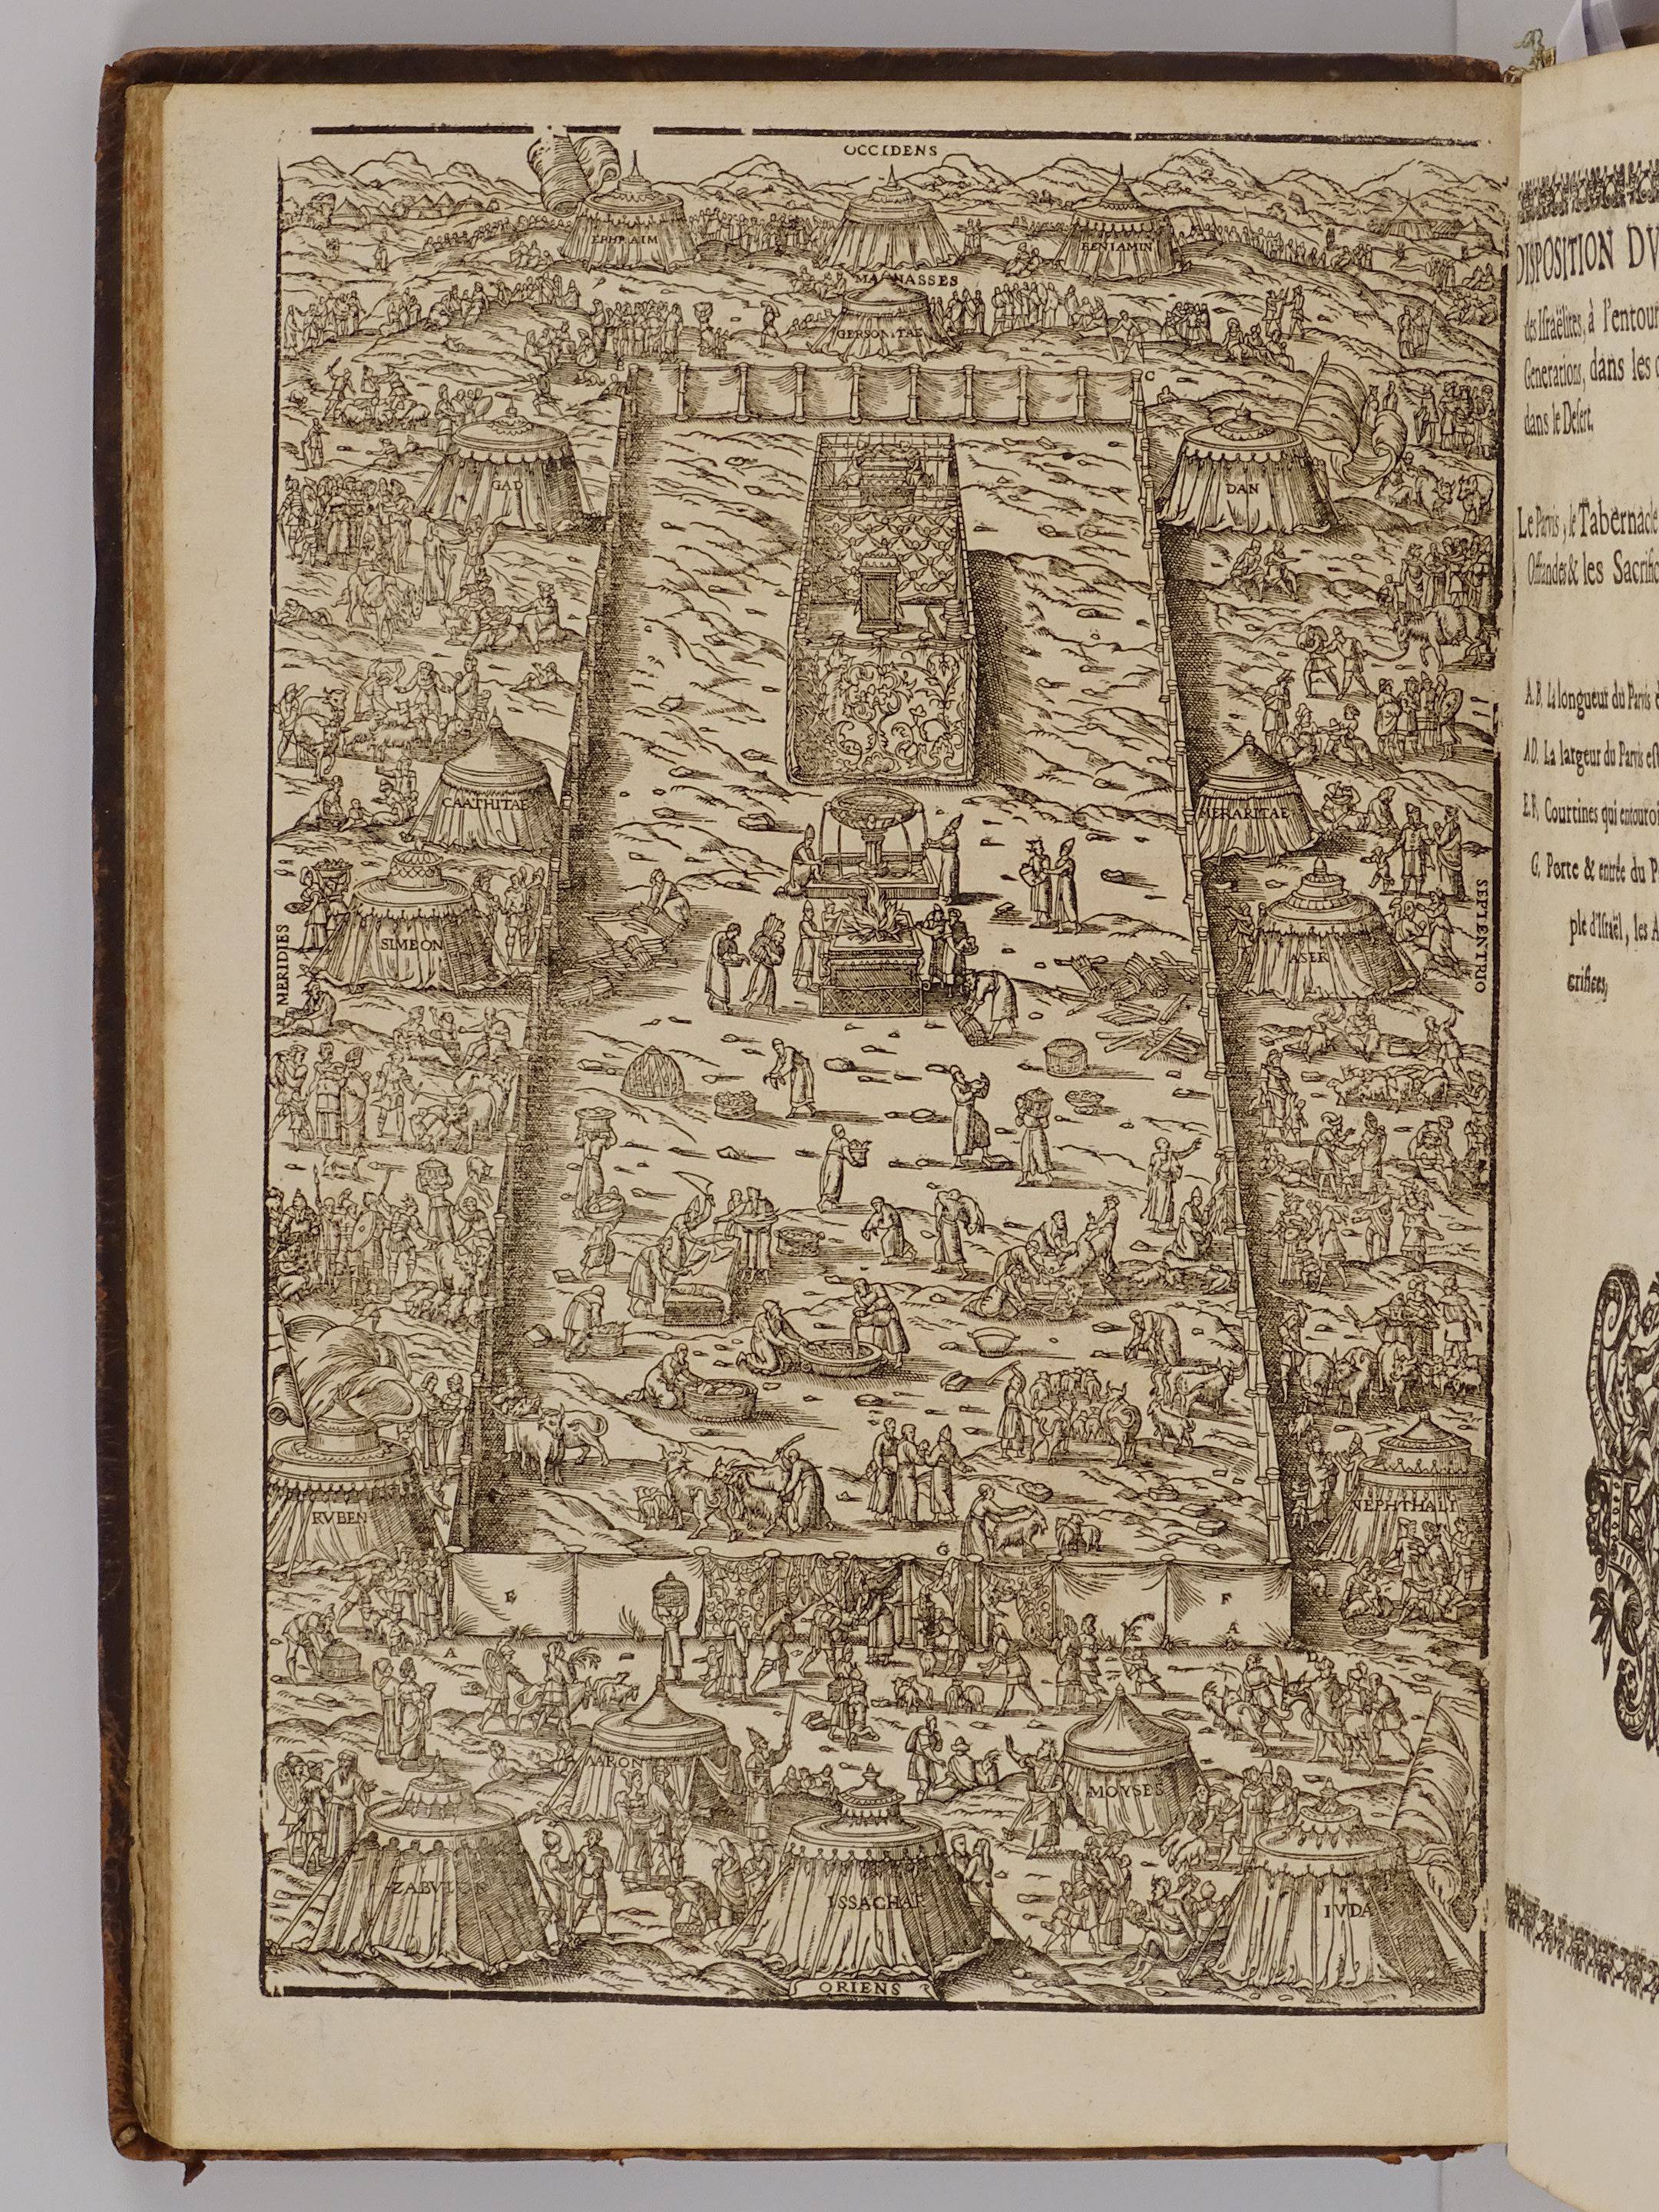 OCCIDENS
EPHRAIM
BENIAMIN
MANASSES
GERSONITAE
C
GAD
DAN
CAATHITAE
MERARITAE
MERIDIES
SIMEON
ASER
SEPTENTRIO
RVBEN
NEPHTHALI
G
E
F
A
A
AARON
MOYSES
ZABVL
ISSACHAR
IVDA
ORIENS
DISPOSITION DV
des Israëlites, à l'entour
Generations, dans les
dans le Desert.
Le Parvis, le Tabernacle
Offrandes & les Sacrific
A. B. La longueur du Parvis
A D. La largeur du Parvis est
E. F. Courtines qui entouroi
G. Porte & entrée du P
ple d'Israël, les A
crifices,